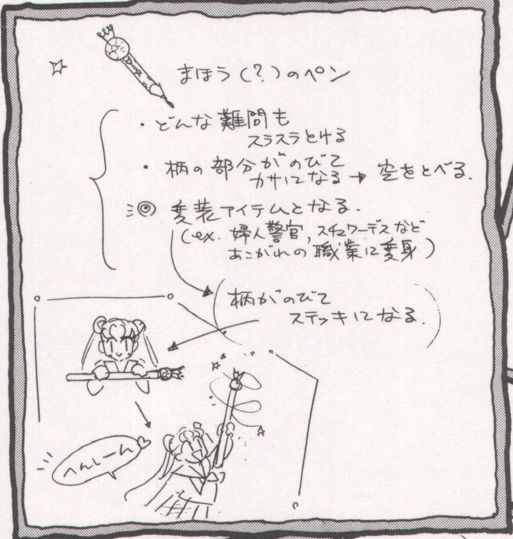 まほう(?)のペン
・どんな難問も
スラスラとける
・柄の部分がのびて
カサになる→空をとべる.
◎変装アイテムとなる.
(ex. 婦人警官,スチュワーデスなど
あこがれの職業に変身)
(柄がのびて
ステッキになる.)
へんしーん